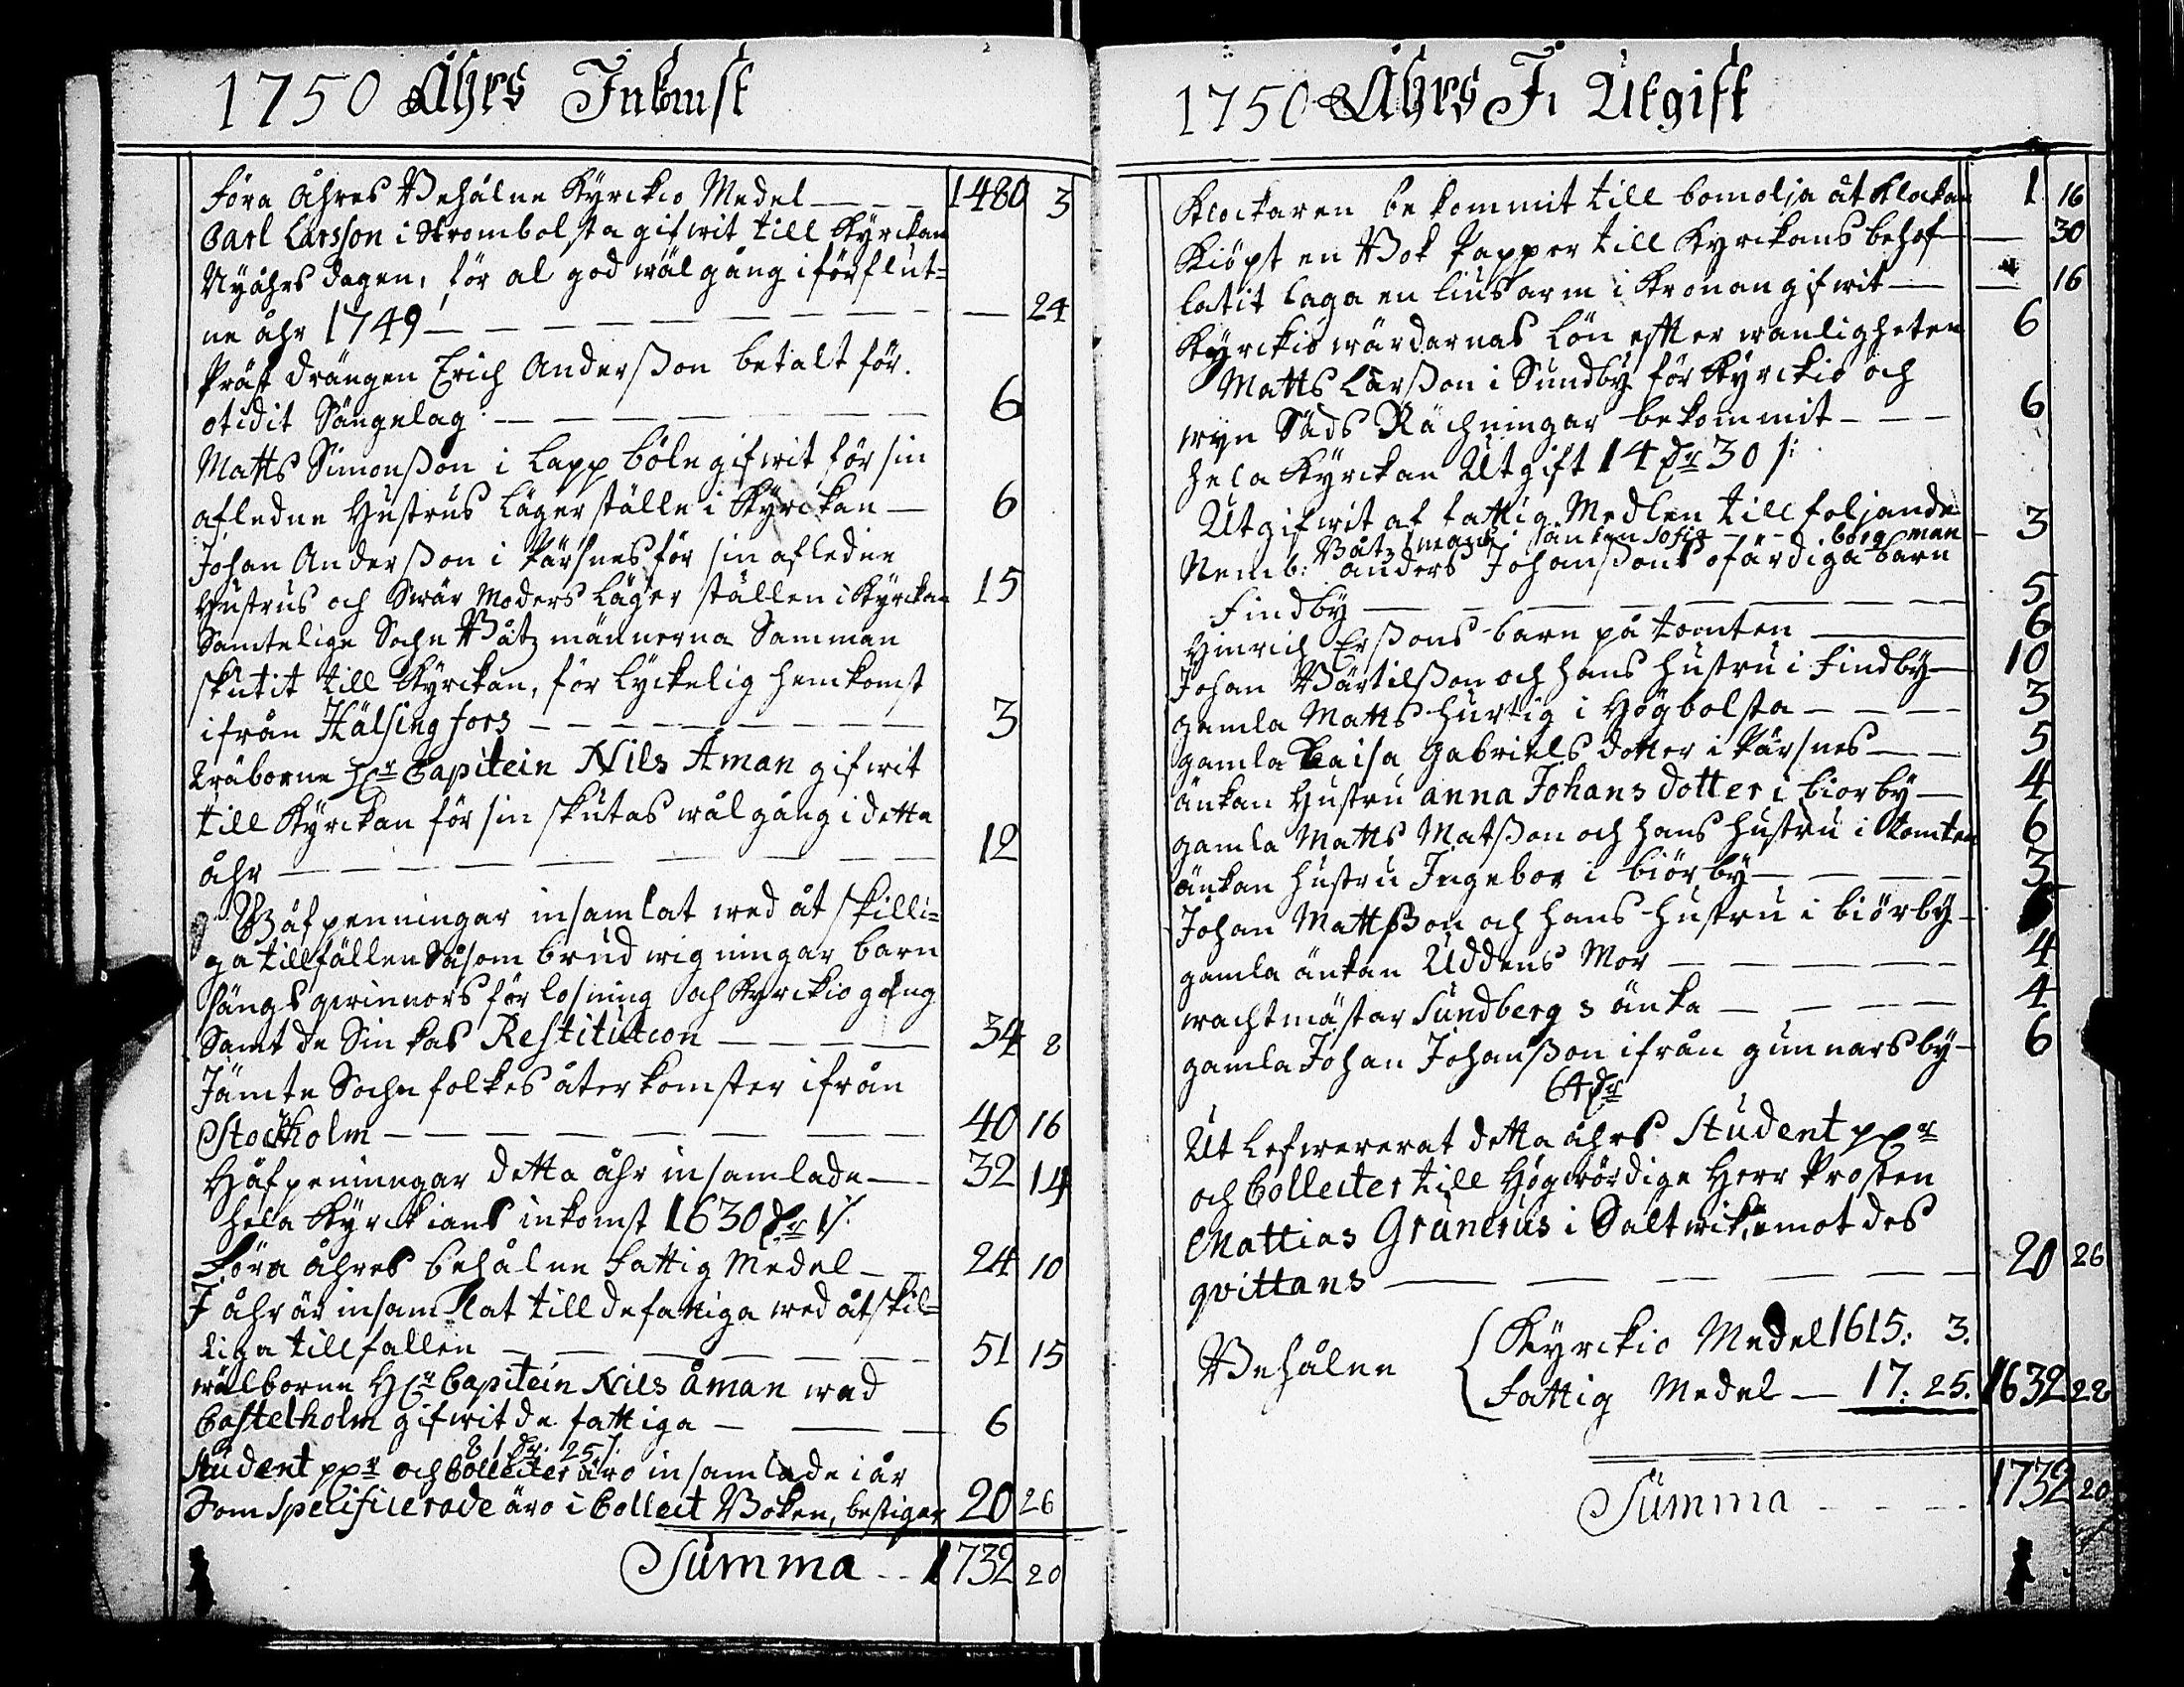 1750 Åhrs Inkomst
förra Åhres Behålne Kyrckio Medel — 1480 3
Carl Larsson i Strombolsta gifwit till Kyrckan
Nyåhrs dagen, för al god wälgång i förflut=
ne åhr 1749 — — 24
Präst drängen Erich Anderßon betalt för
otidit Sängelag — 6
Matts Simonßon i Lappböle gifwit för sin
afledne Hustrus Lägerställe i Kyrckan — 6
Johan Anderßon i Pärsnes för sin afledne
Hustrus och Swär Moders Läger ställen i Kyrckan 15
Samtelige Sochne Båtzmännerna Samman
skutit till Kyrckan, för Lyckelig hemkomst
ifrån Hälsingfors — 3
Wälborne Hr Capitein Nils Åman gifwit
till Kyrckan för sin skutas wälgång i detta
åhr — 12
Håfpenningar insamlat wed åtskilli=
ga tillfällen Såsom brudwigningar barn
sängs qwinnors förlosning och Kyrckiogång
Samt de Siukas Restitution — 34 8
Jämte Sochnefolkes återkomster ifrån
Stockholm — 40 16
Håfpeningar detta åhr insamlade — 32 14
hela Kyrckians inkomst 1630 dr 1/:
Förra åhres behålne Fattig Medel — 24 10
I åhr är insamlat till de fattiga wed åtskil=
liga tillfällen — 51 15
wälborne Hr Capitein Nils Åman wed
Castelholm gifwit de fattiga — 6
81 dr: 25/:
Student ppr och Collecter äro insamlade i år
Som Specificerade äro i Collect Boken, bestiger 20 26
Summa — 1732 20
1750 Åhrs Utgift
Klockaren bekommit till bomolja åt Klockan 1 16
Kiöpt en Bok Papper till Kyrckans behof — 30
latit laga en liusarm i Kronan gifwit — 16
Kyrckiowärdarnas Lön efter wanligheten 6
Matts Larßon i Sundby för Kyrckio och
wyn Säds Rächningar bekommit — 6
hela Kyrckan Utgift 14 dr 30 /:
Utgifwit af fattig Medlen till foljande
Båtzmans änkan Sofia borgman — 3
Nemb: anders Johanßons ofärdiga barn
Findby — 5
Hinrich Erßons barn på tomten — 6
Johan Bärtilßon och hans hustru i Findby — 10
gamla Matts hurtig i Högbolsta — 3
gamla Caisa Gabriels dotter i Pärsnes — 5
änkan Hustru anna Johans dotter i biorby — 4
gamla Matts Matßon och hans hustru i tomten 6
änkan hustru Ingebor i biörby — 3
Johan Mattßon och hans hustru i biörby —
gamla änkan Uddens Mor — 4
wachtmästar Sundbergs änka — 4
gamla Johan Johanßon ifrån gunnarsby — 6
64 dr
Ut Lefwererat detta åhrs Student ppr
och Collecter till Högwördige Herr Prosten
Mattias Grunerus i Saltwik, emot des
qvittans — 20 26
Behålne { Kyrckio Medel 1615: 3.
Fattig Medel — 17. 25. 1632 28
Summa — 1732 20